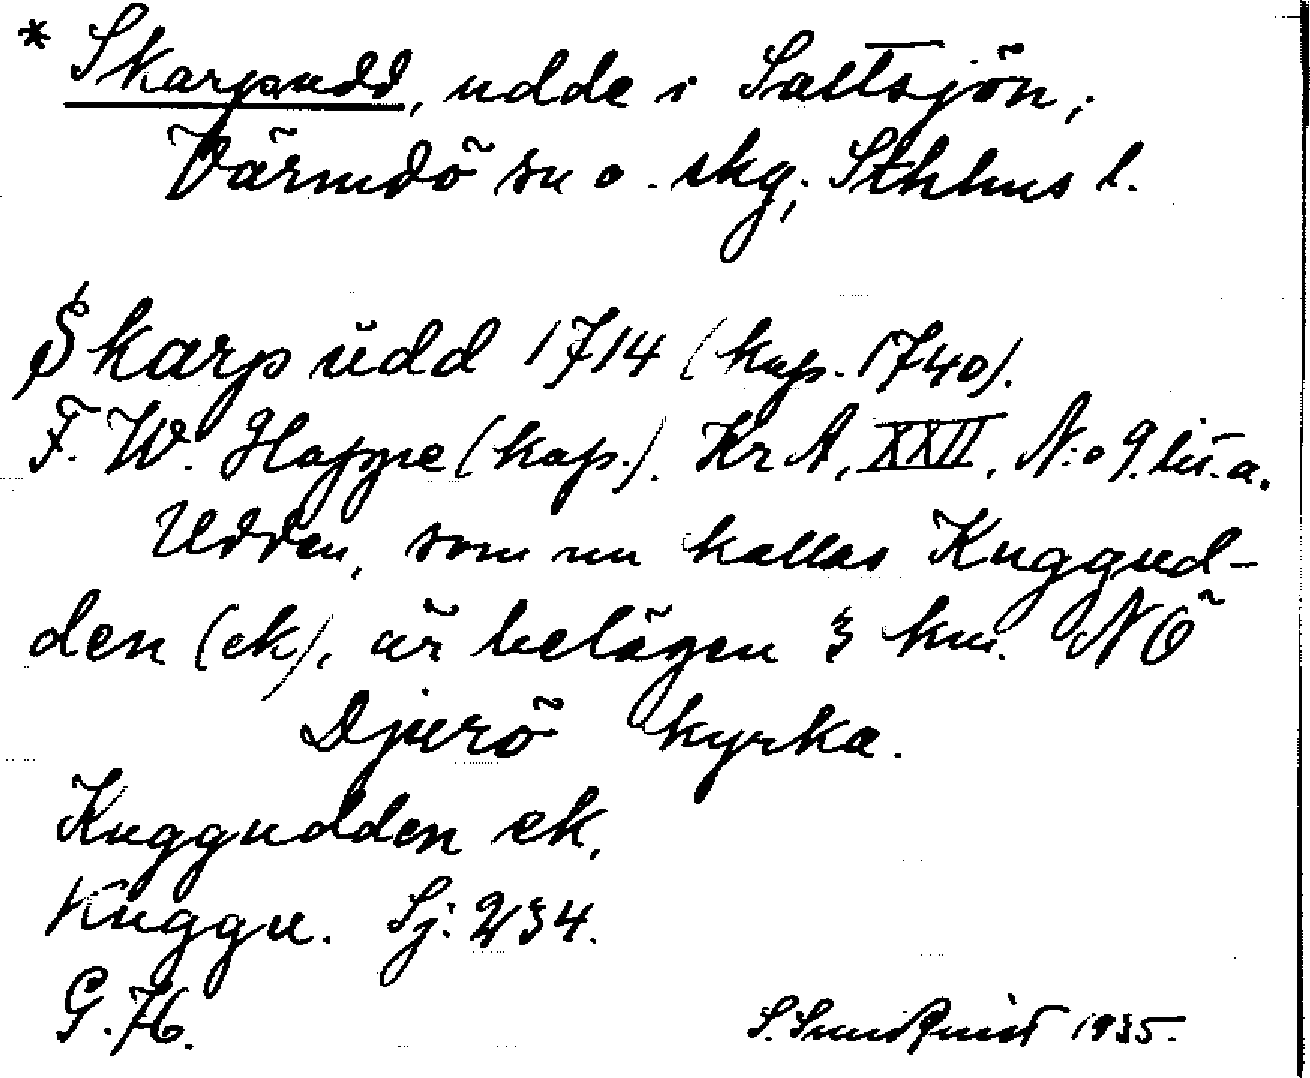 * Skarpudd, udde i Saltsjön,
Värmdö sn o. skg, Sthlms l.
Skarp udd 1714 (kop. 1740).
F. W. Hoppe (kop.). Kr A, XXII, N:o 9. lit. a.
Udden, som nu kallas Kuggud-
den (ek), är belägen 3 km. NÖ
Djurö kyrka.
Kuggudden ek,
Kuggu. Sj: 234.
G. 76.
S. Sundquist 1935.